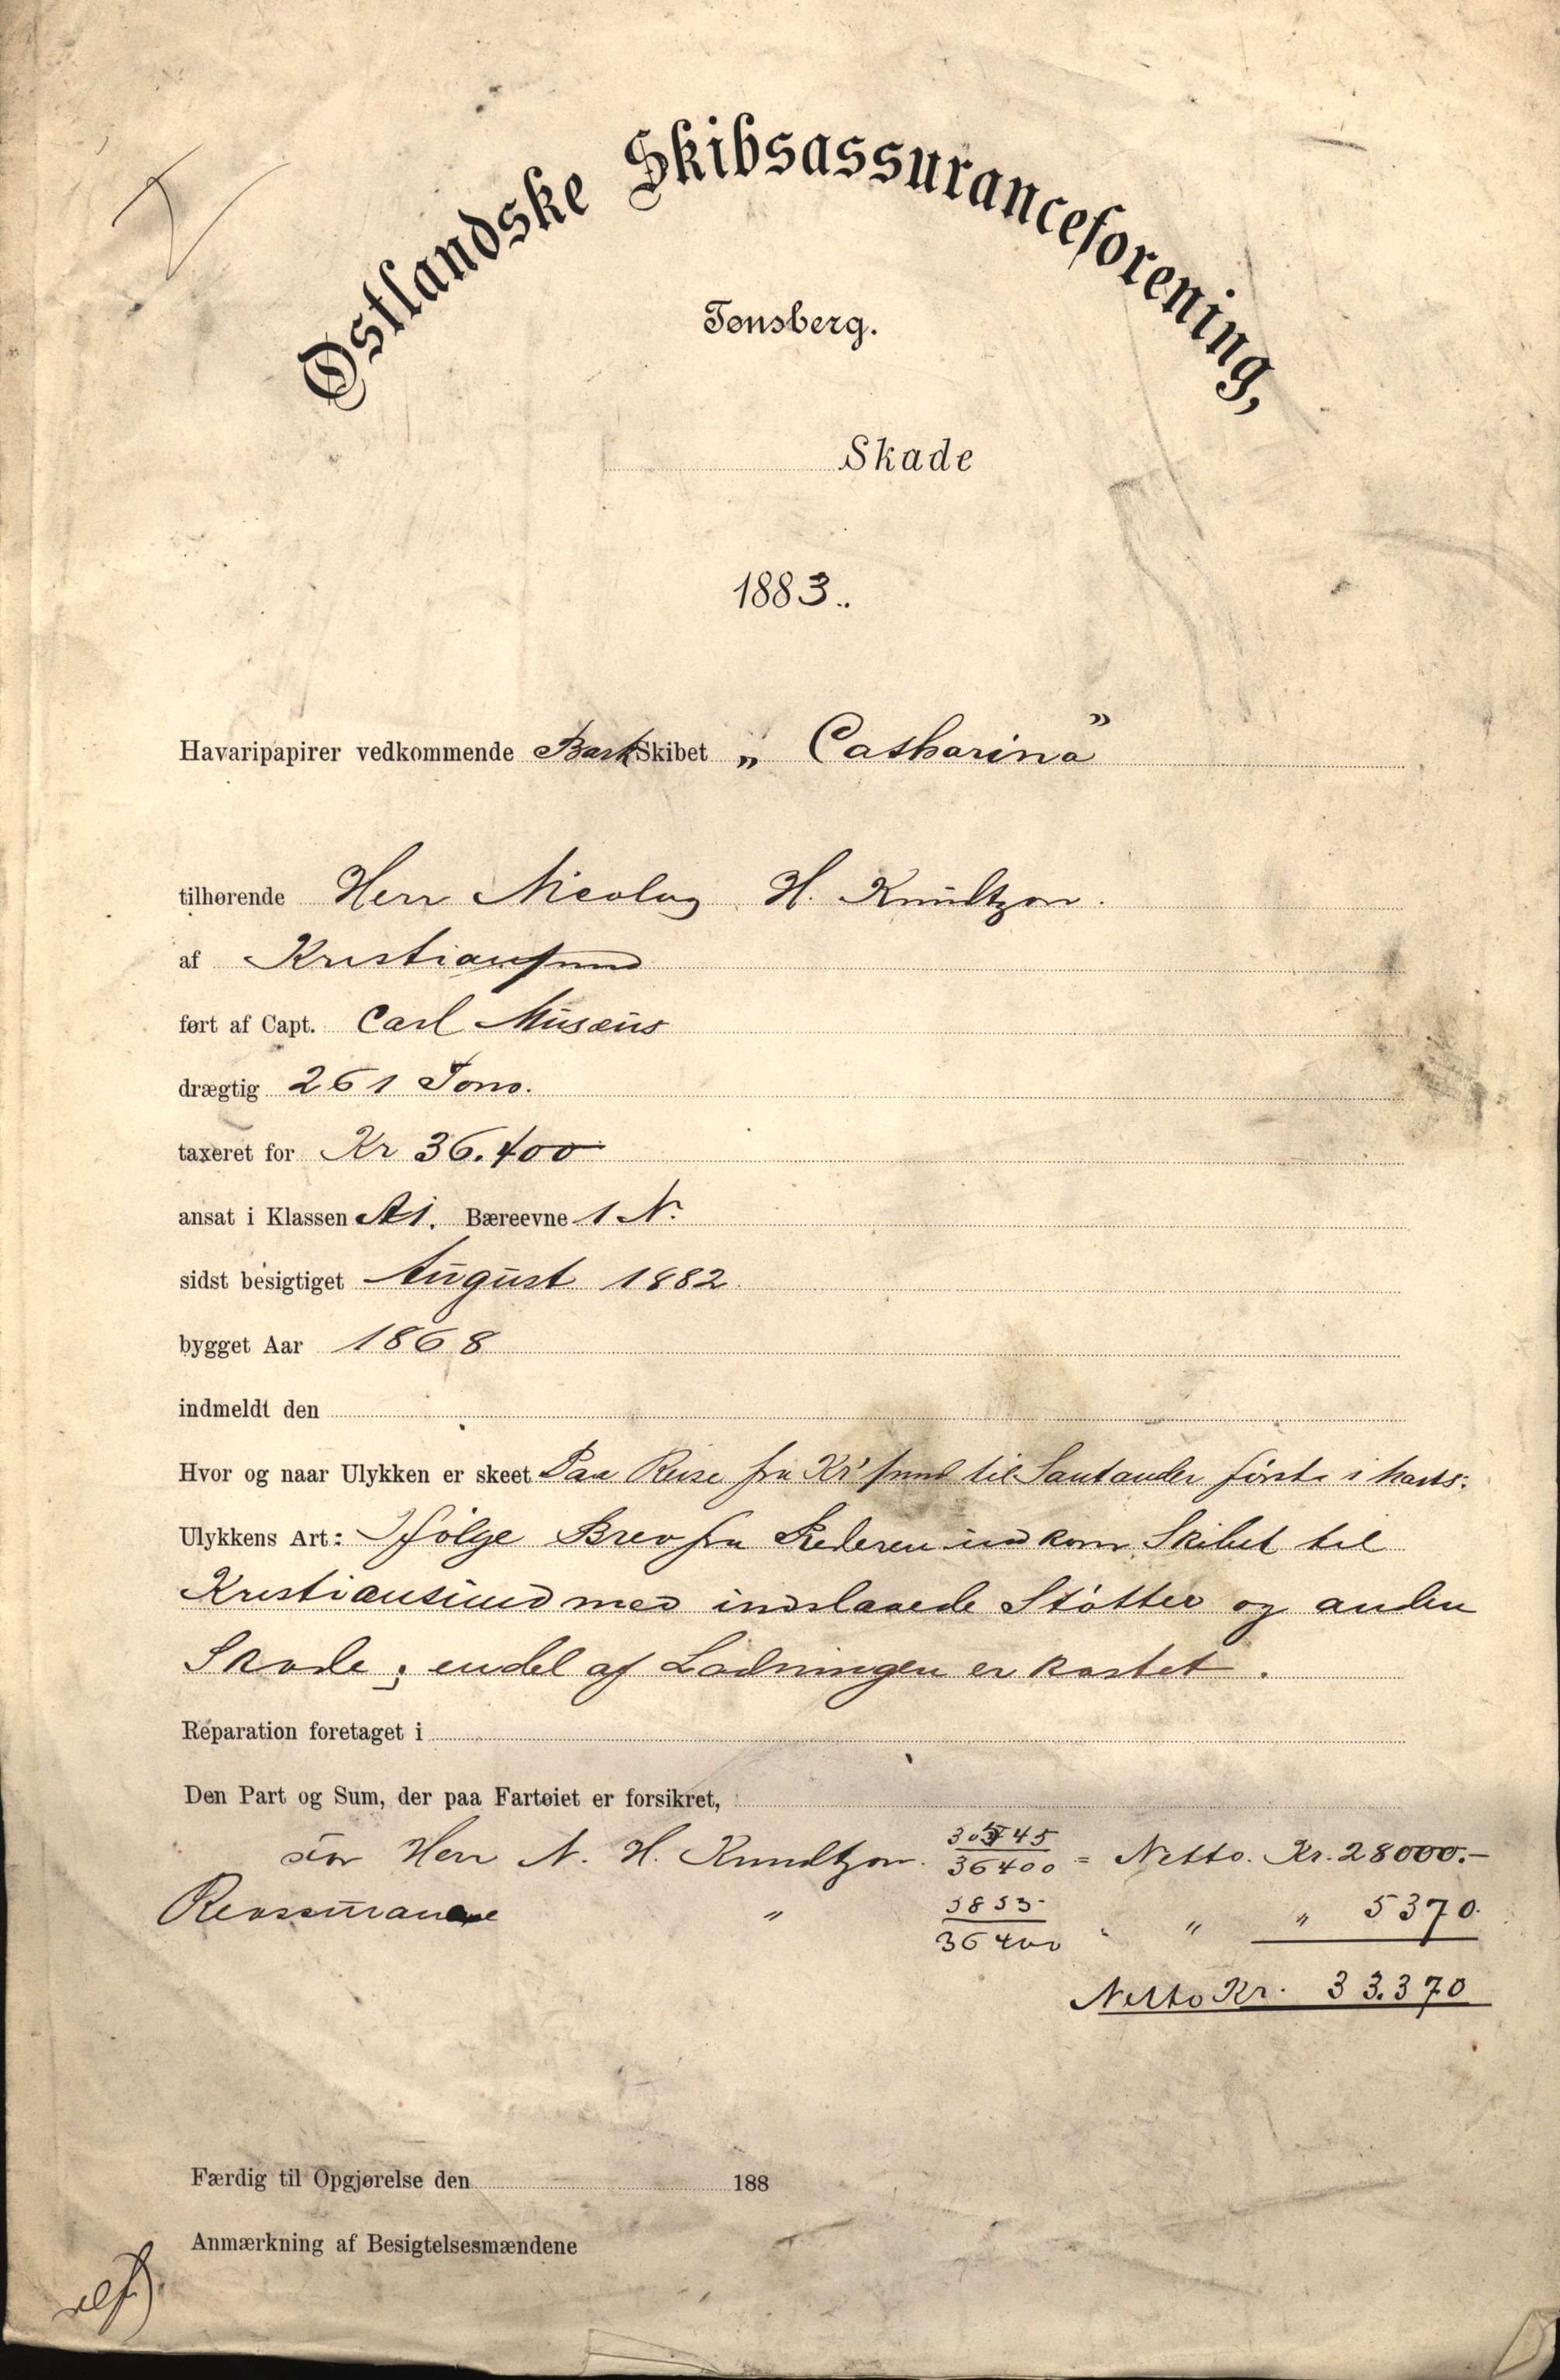 Østlandske Skibsassuranceforening,
Tønsberg.
Skade
1883.
Havaripapirer vedkommende Bark Skibet „ Catharina"
tilhørende Herr Nicolay H. Knudtzon.
af Kristiansund
ført af Capt. Carl Musæus
drægtig 261 Tons.
taxeret for Kr 36.400
ansat i Klassen A1. Bæreevne 1 N.
sidst besigtiget August 1882
bygget Aar 1868
indmeldt den
Hvor og naar Ulykken er skeet Paa Reise fra Kr'sund til Santander først i Marts.
Ulykkens Art: Ifølge Brev fra Rederen indkom Skibet til
Kristiansund med indslaaede Støtter og anden
Skade; endel af Ladningen er kastet.
Reparation foretaget i
Den Part og Sum, der paa Fartøiet er forsikret,
For Herr N. H. Knudtzon. 36400 = Netto. Kr. 28000.-
Reassurance " 5853 / 36400 " " 5370.
Netto Kr. 33.370
Færdig til Opgjørelse den 188
Anmærkning af Besigtelsesmændene